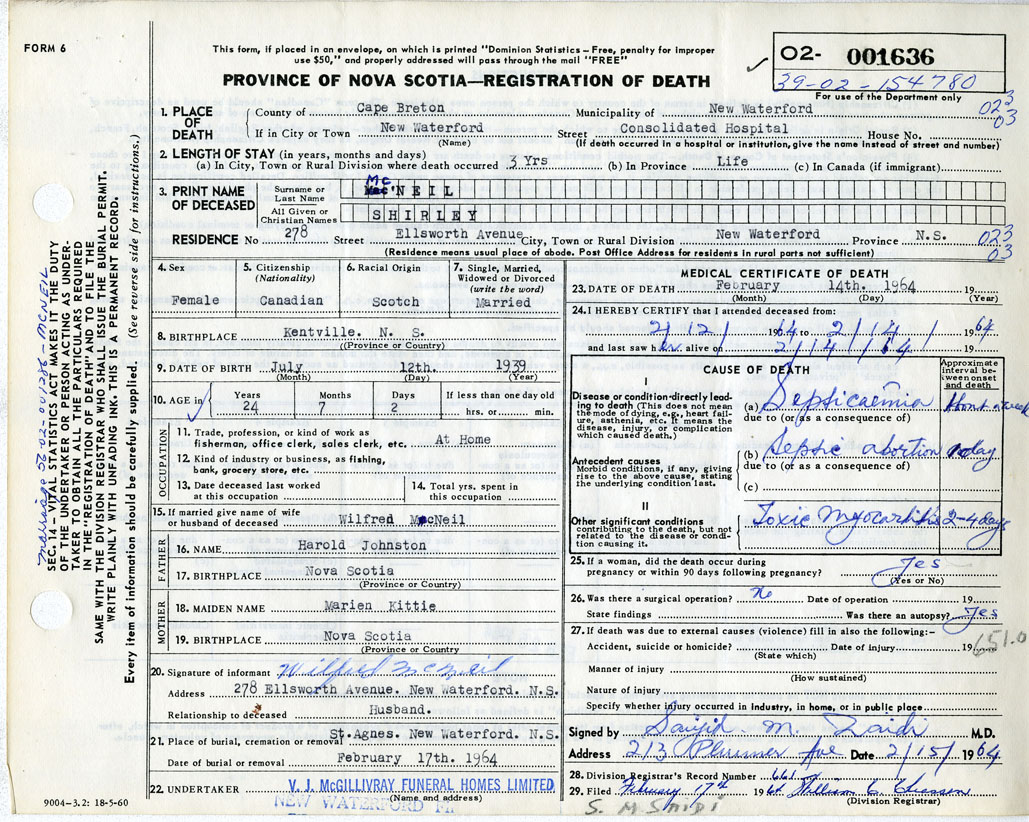 FORM 6
This form, if placed in an envelope, on which is printed "Dominion Statistics—Free, penalty for improper
use $50," and properly addressed will pass through the mail "FREE"
PROVINCE OF NOVA SCOTIA—REGISTRATION OF DEATH
O2- 001636
39-02-154780
For use of the Department only
023
03
1. PLACE OF DEATH
County of Cape Breton Municipality of New Waterford
If in City or Town New Waterford Street Consolidated Hospital House No.
(Name) (If death occurred in a hospital or institution, give the name instead of street and number)
2. LENGTH OF STAY (in years, months and days)
(a) In City, Town or Rural Division where death occurred 3 Yrs (b) In Province Life (c) In Canada (if immigrant)
3. PRINT NAME OF DECEASED
Surname or Last Name Mc NEIL
All Given or Christian Names SHIRLEY
RESIDENCE No 278 Street Ellsworth Avenue City, Town or Rural Division New Waterford Province N.S.
(Residence means usual place of abode. Post Office Address for residents in rural parts not sufficient)
023
03
4. Sex Female
5. Citizenship (Nationality) Canadian
6. Racial Origin Scotch
7. Single, Married, Widowed or Divorced (write the word) Married
8. BIRTHPLACE Kentville. N. S.
(Province or Country)
9. DATE OF BIRTH July 12th. 1939
(Month) (Day) (Year)
10. AGE in Years Months Days If less than one day old
24 7 2 hrs. or min.
OCCUPATION
11. Trade, profession, or kind of work as
fisherman, office clerk, sales clerk, etc. At Home
12. Kind of industry or business, as fishing,
bank, grocery store, etc.
13. Date deceased last worked
at this occupation
14. Total yrs. spent in
this occupation
15. If married give name of wife
or husband of deceased Wilfred McNeil
FATHER
16. NAME Harold Johnston
17. BIRTHPLACE Nova Scotia
(Province or Country)
MOTHER
18. MAIDEN NAME Marien Kittie
19. BIRTHPLACE Nova Scotia
(Province or Country
20. Signature of informant Wilfred McNeil
Address 278 Ellsworth Avenue. New Waterford. N.S.
Relationship to deceased Husband.
21. Place of burial, cremation or removal St.Agnes. New Waterford. N.S.
Date of burial or removal February 17th. 1964
22. UNDERTAKER V. J. McGILLIVRAY FUNERAL HOMES LIMITED
(Name and address)
NEW WATERFORD
9004-3.2: 18-5-60
MEDICAL CERTIFICATE OF DEATH
23. DATE OF DEATH February 14th. 1964 19
(Month) (Day) (Year)
24. I HEREBY CERTIFY that I attended deceased from:
2/12/ 1964 to 2/14/ 1964
and last saw her alive on 2/14/64 19
CAUSE OF DEATH
Approximate interval between onset and death
I
Disease or condition directly leading to death (This does not mean the mode of dying, e.g., heart failure, asthenia, etc. It means the disease, injury, or complication which caused death.)
(a) Septicaemia About a week
due to (or as a consequence of)
Antecedent causes
Morbid conditions, if any, giving rise to the above cause, stating the underlying condition last.
(b) Septic abortion day
due to (or as a consequence of)
(c)
II
Other significant conditions
contributing to the death, but not related to the disease or condition causing it.
Toxic Myocarditis 2-4 days
25. If a woman, did the death occur during
pregnancy or within 90 days following pregnancy? Yes
(Yes or No)
26. Was there a surgical operation? No Date of operation 19
State findings Was there an autopsy? Yes
27. If death was due to external causes (violence) fill in also the following:-
Accident, suicide or homicide? Date of injury 19
(State which)
651.0
Manner of injury
(How sustained)
Nature of injury
Specify whether injury occurred in industry, in home, or in public place
Signed by Saiyid M. Zaidi M.D.
Address 213 Plummer Ave Date 2/15/ 1964
28. Division Registrar's Record Number 661
29. Filed February 17th 1964 William C.
(Division Registrar)
S. M Saidi
Marriage 56-02-001286-McNEIL
SEC. 14—VITAL STATISTICS ACT MAKES IT THE DUTY
OF THE UNDERTAKER OR PERSON ACTING AS UNDER-
TAKER TO OBTAIN ALL THE PARTICULARS REQUIRED
IN THE "REGISTRATION OF DEATH" AND TO FILE THE
SAME WITH THE DIVISION REGISTRAR WHO SHALL ISSUE THE BURIAL PERMIT.
WRITE PLAINLY WITH UNFADING INK. THIS IS A PERMANENT RECORD.
Every item of information should be carefully supplied. (See reverse side for instructions.)